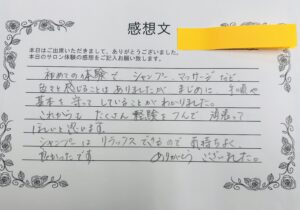 感想文
本日はご出席いただきまして、ありがとうございました。
本日のサロン体験の感想をご記入お願い致します。
初めての体験で シャンプー、マッサージなど
色々と感じることはありましたが まじめに 手順や
基本を守ってしていることがわかりました。
これからも たくさん 経験をつんで 頑張って
ほしいと思います。
シャンプーは リラックスできるので 気持ちよく、
良かったです。 ありがとう ございました。